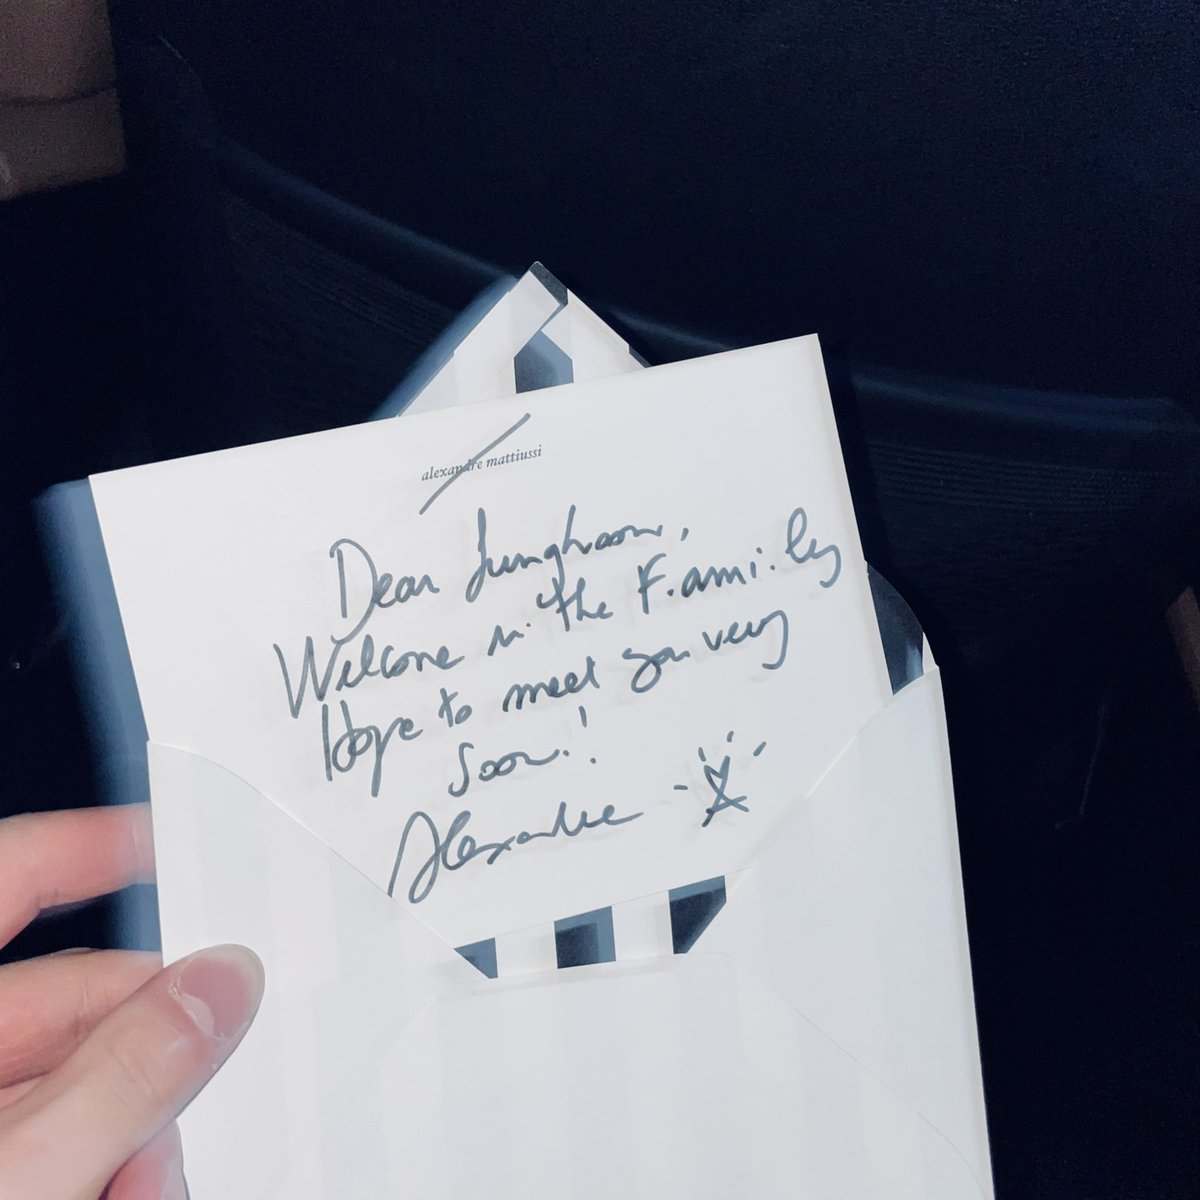 alexandre mattiussi
Dear Junghoon,
Welcome in the Family
Hope to meet you very
soon!
Alexandre